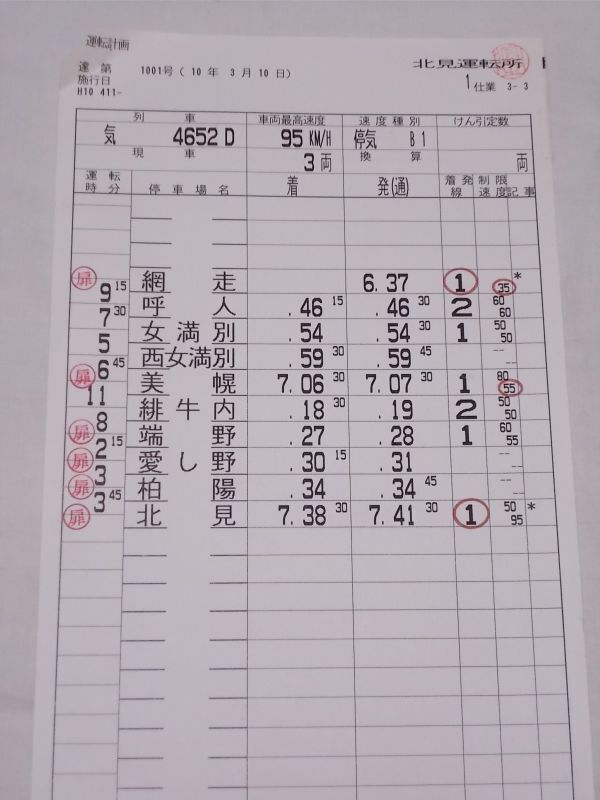 運転計画
達 第 1001号 ( 10 年 3 月 10 日)
北見運転所
施行日
H10 411-
1 仕業 3- 3
列 車 車両最高速度 速度種別 けん引定数
気 4652D 95 KM/H 停気 B1
現 車 換 算
3 両 両
運転時分 停車場名 着 発(通) 着発線 制限速度 記事
扉 網 走 6.37 1 35 *
9 15
呼 人 .46 15 .46 30 2 60 60
7 30
女 満 別 .54 .54 30 1 50 50
5
西女満別 .59 30 .59 45 -- --
6 45
扉 美 幌 7.06 30 7.07 30 1 80 55
11
緋 牛 内 .18 30 .19 2 50 50
8
扉 端 野 .27 .28 1 60 55
2 15
扉 愛 し 野 .30 15 .31 -- --
3
扉 柏 陽 .34 .34 45 -- --
3 45
扉 北 見 7.38 30 7.41 30 1 50 95 *